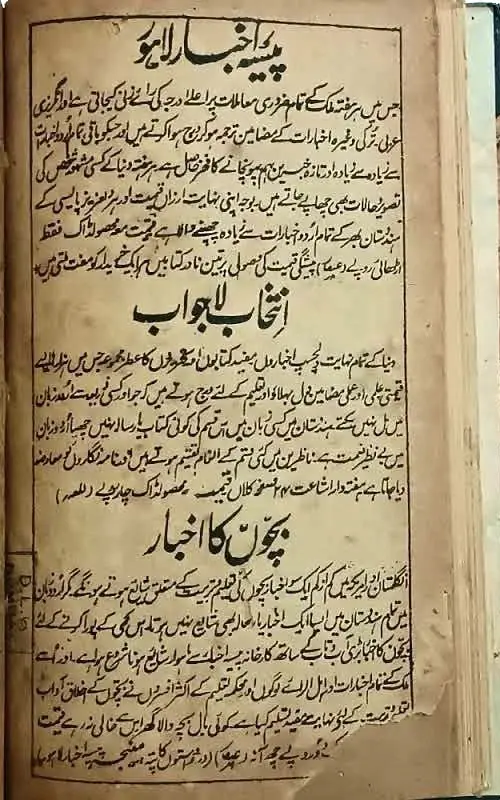 پیسہ اخبار لاہور
جس میں ہر ہفتہ ملک کے تمام ضروری معاملات پر اعلےٰ درجہ کی رائے زنی کیجاتی ہے اور انگریزی
عربی۔ ترکی وغیرہ اخبارات کے مضامین ترجمہ ہو کر درج ہوا کرتے ہیں اور جسکو باقی تمام اُردو اخبارات
سے زیادہ سے زیادہ اور تازہ خبریں بہم پہونچانے کا فخر حاصل ہے۔ ہر ہفتہ دنیا کے کسی مشہور شخص کی
تصویر و حالات بھی چھاپے جاتے ہیں۔ بوجہ اپنی نہایت ارزاں قیمت اور ہر دلعزیز پالیسی کے
ہندوستان بھر کے تمام اُردو اخبارات سے زیادہ چھپنے والا ہے قیمت معہ محصولڈاک فقط
اڑھائی روپے پیشگی قیمت کی وصولی پر تین نادر کتابیں ہر ایک خریدار کو مفت ملتی ہیں
انتخاب لاجواب
دنیا کے تمام نہایت دلچسپ اخباروں۔ مفید کتابوں اور کا عطر مجموعہ جس میں ہزارہا ایسے
قیمتی علمی اور عملی مضامین دل بہلاؤ اور تعلیم کے لئے درج ہوتے ہیں کہ جو اور کسی ذریعہ سے اُردو زبان
میں مل نہیں سکتے ہندوستان میں کسی زبان میں اس قسم کی کوئی کتاب یا رسالہ نہیں چھپتا اُردو زبان
میں بے نظیر نعمت ہے۔ ناظرین میں کئی قسم کے انعام تقسیم ہوتے ہیں نامہ نگاروں کو معاوضہ
دیا جاتا ہے ہفتہ وار اشاعت ۲۴ صفحہ کلاں قیمت محصولڈاک چار روپے
بچّوں کا اخبار
انگلستان اور امریکہ میں کم از کم ایک سو اخبار بچوں کی تعلیم و تربیت کے متعلق شایع ہوتے ہونگے مگر اُردو زبان
میں تمام ہندوستان میں ایسا ایک اخبار یا رسالہ بھی شایع نہیں ہوتا۔ اس کمی کے پورا کرنے کے لئے
بچّوں کا اخبار بڑی آب و تاب کے ساتھ کارخانہ پیسہ اخبار سے ماہوار شایع ہونا شروع ہوا ہے۔ اور اُسے
ملک کے تمام اخبارات اور اہل الرائے لوگوں اور محکمہ تعلیم کے اکثر افسروں نے بچّوں کے اخلاق آداب
کے لئے نہایت مفید تسلیم کیا ہے کوئی بال بچہ والا گھر اس سے خالی نہ رہے قیمت
دو روپے چھ آنہ درخواستوں کا پتہ۔ منیجر پیسہ اخبار لاہور